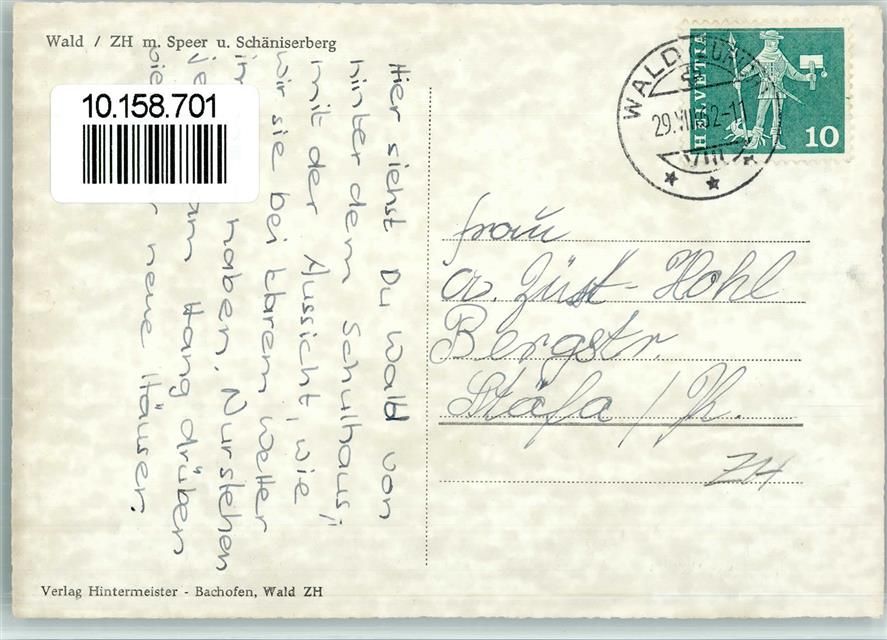 Wald / ZH m. Speer u. Schäniserberg
10.158.701
WALD (ZÜRICH)
29.VIII.62-11
VIII
HELVETIA
10
Hier siehst Du Wald von
hinter dem Schulhaus;
mit der Aussicht, wie
wir sie bei klarem Wetter
haben. Nur stehen
am Hang drüben
neue Häuser.
Frau
a. Jüst-Hohl
Bergstr.
Stäfa / Zh.
ZH
Verlag Hintermeister - Bachofen, Wald ZH